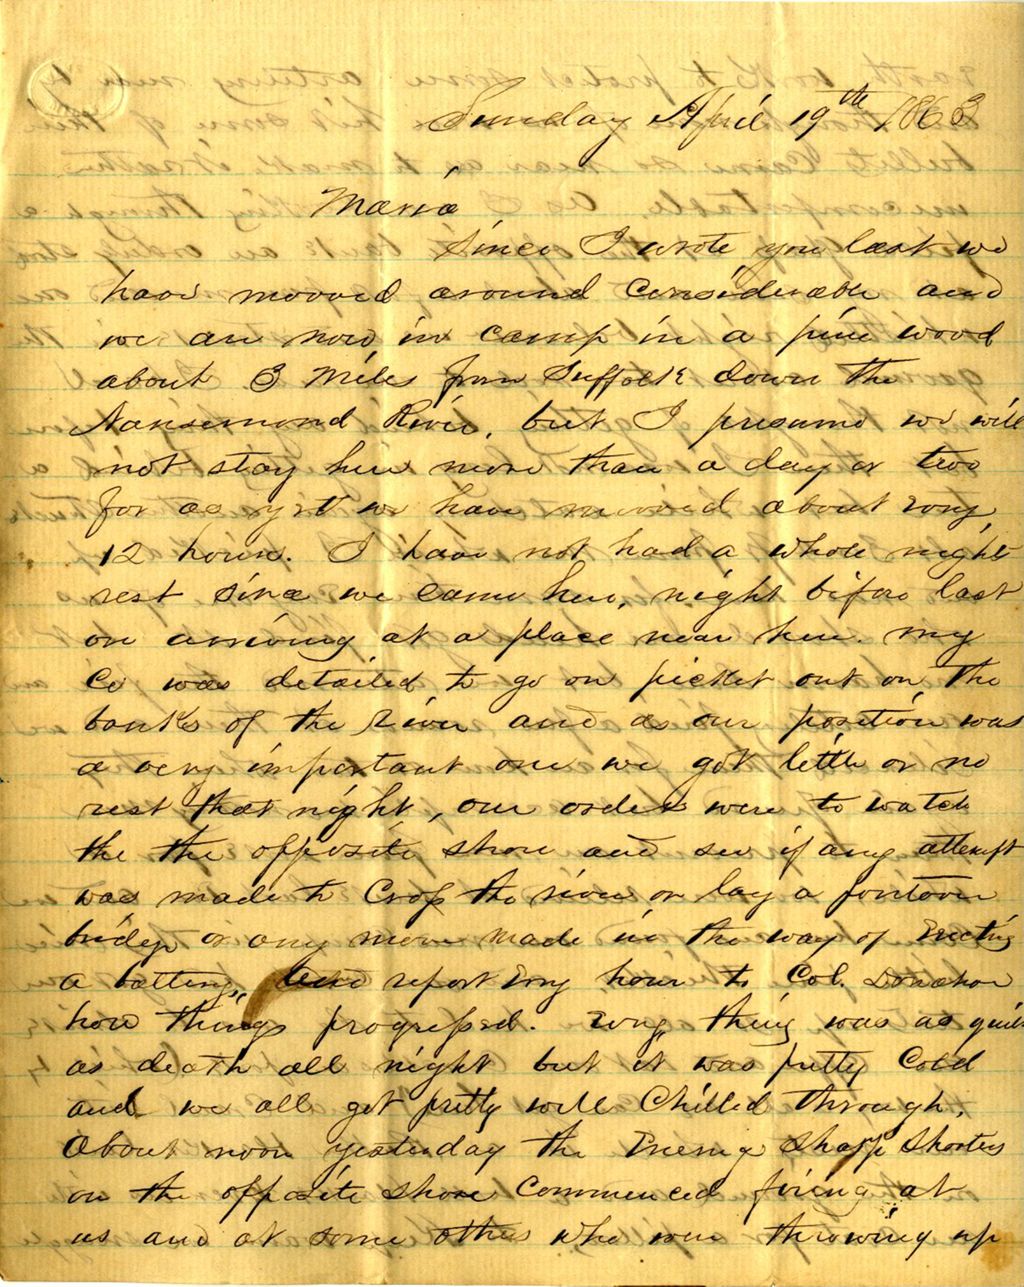 Sunday April 19th 1863
Maria
Since I wrote you last we
have mooved around considerable and
we are now in camp in a pine wood
about 3 Miles from Suffolk down the
Nansemond River, but I presume we will
not stay here more than a day or two
for as yet we have mooved about evry
12 hours. I have not had a whole nights
rest since we came here, night before last
on arriving at a place near here my
Co was detailed to go on picket out on the
banks of the river and as our position was
a very important one we got little or no
rest that night, our orders were to watch
the the opposite shore and see if any attempt
was made to Cross the river or lay a pontoon
bridge or any move made in the way of Erecting
a battery, and report evry hour to Col. Donohoe
how things progressed. Evry thing was as quiet
as death all night but it was pretty Cold
and we all got pretty well Chilled through.
About noon yesterday the Enemy Sharp Shooters
on the opposite shore Commenced firing at
us and at some others who were throwing up